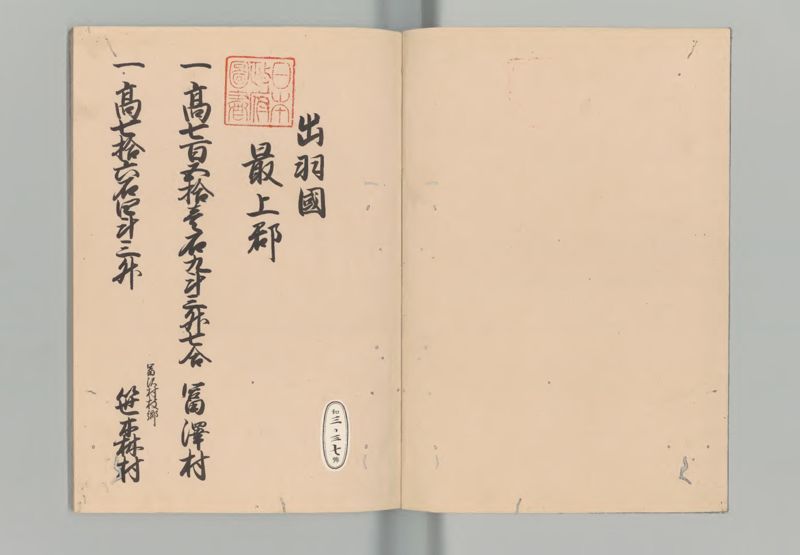 出羽國
最上郡
一高七百五拾壱石九斗三升七合 冨澤村
冨沢村枝郷
一高七拾六石四斗三升 笹森村
日本政府圖書
和
三、三七
號